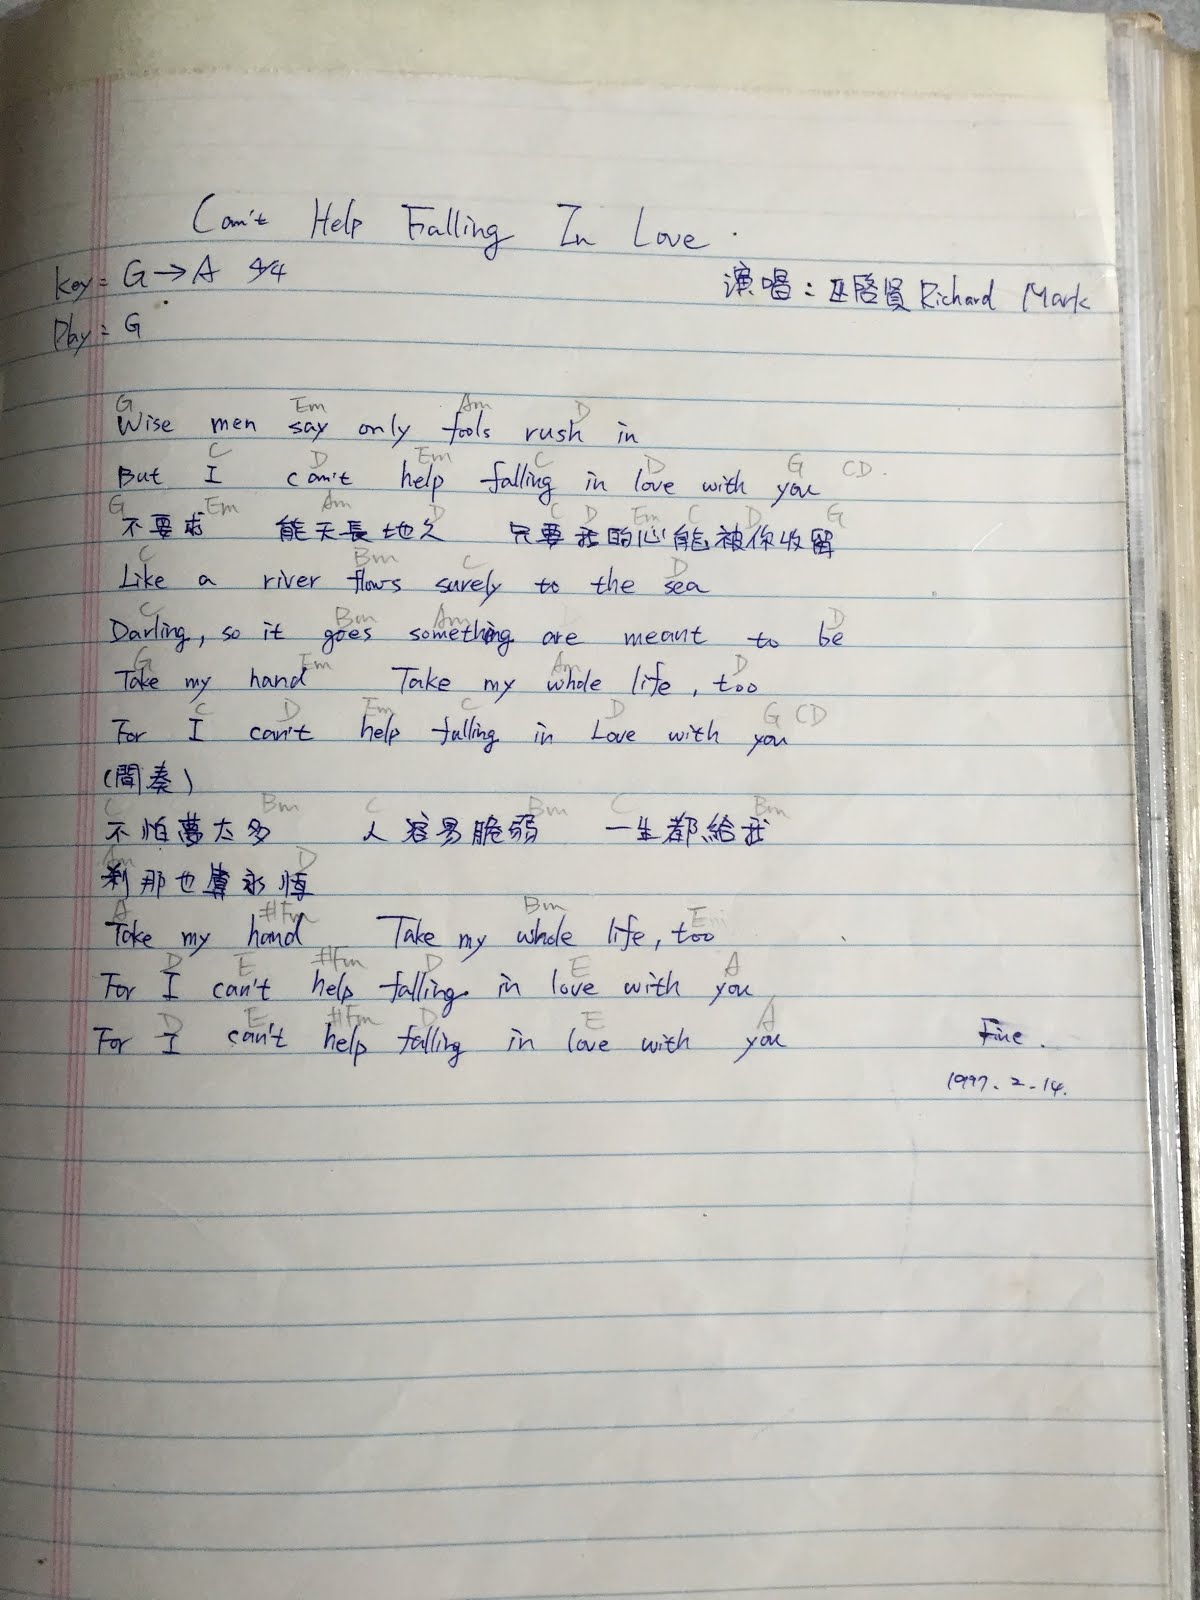 Can't Help Falling In Love.
key = G → A 4/4
演唱：巫啓賢 Richard Mark
Play = G
G Em Am D
Wise men say only fools rush in
C D Em C D G CD.
But I can't help falling in love with you
G Em Am D C D Em C D G
不要求 能天長地久 只要我的心能被你收留
C Bm C D
Like a river flows surely to the sea
C Bm Am D
Darling, so it goes something are meant to be
G Em Am D
Take my hand Take my whole life, too
C D Em C D G CD
For I can't help falling in Love with you
(間奏)
C Bm C Bm C Bm
不怕夢太多 人容易脆弱 一生都給我
Am D
剎那也算永恆
A #Fm Bm E
Take my hand Take my whole life, too
D E #Fm D E A
For I can't help falling in love with you
D E #Fm D E A
For I can't help falling in love with you
Fine.
1997.2.14.